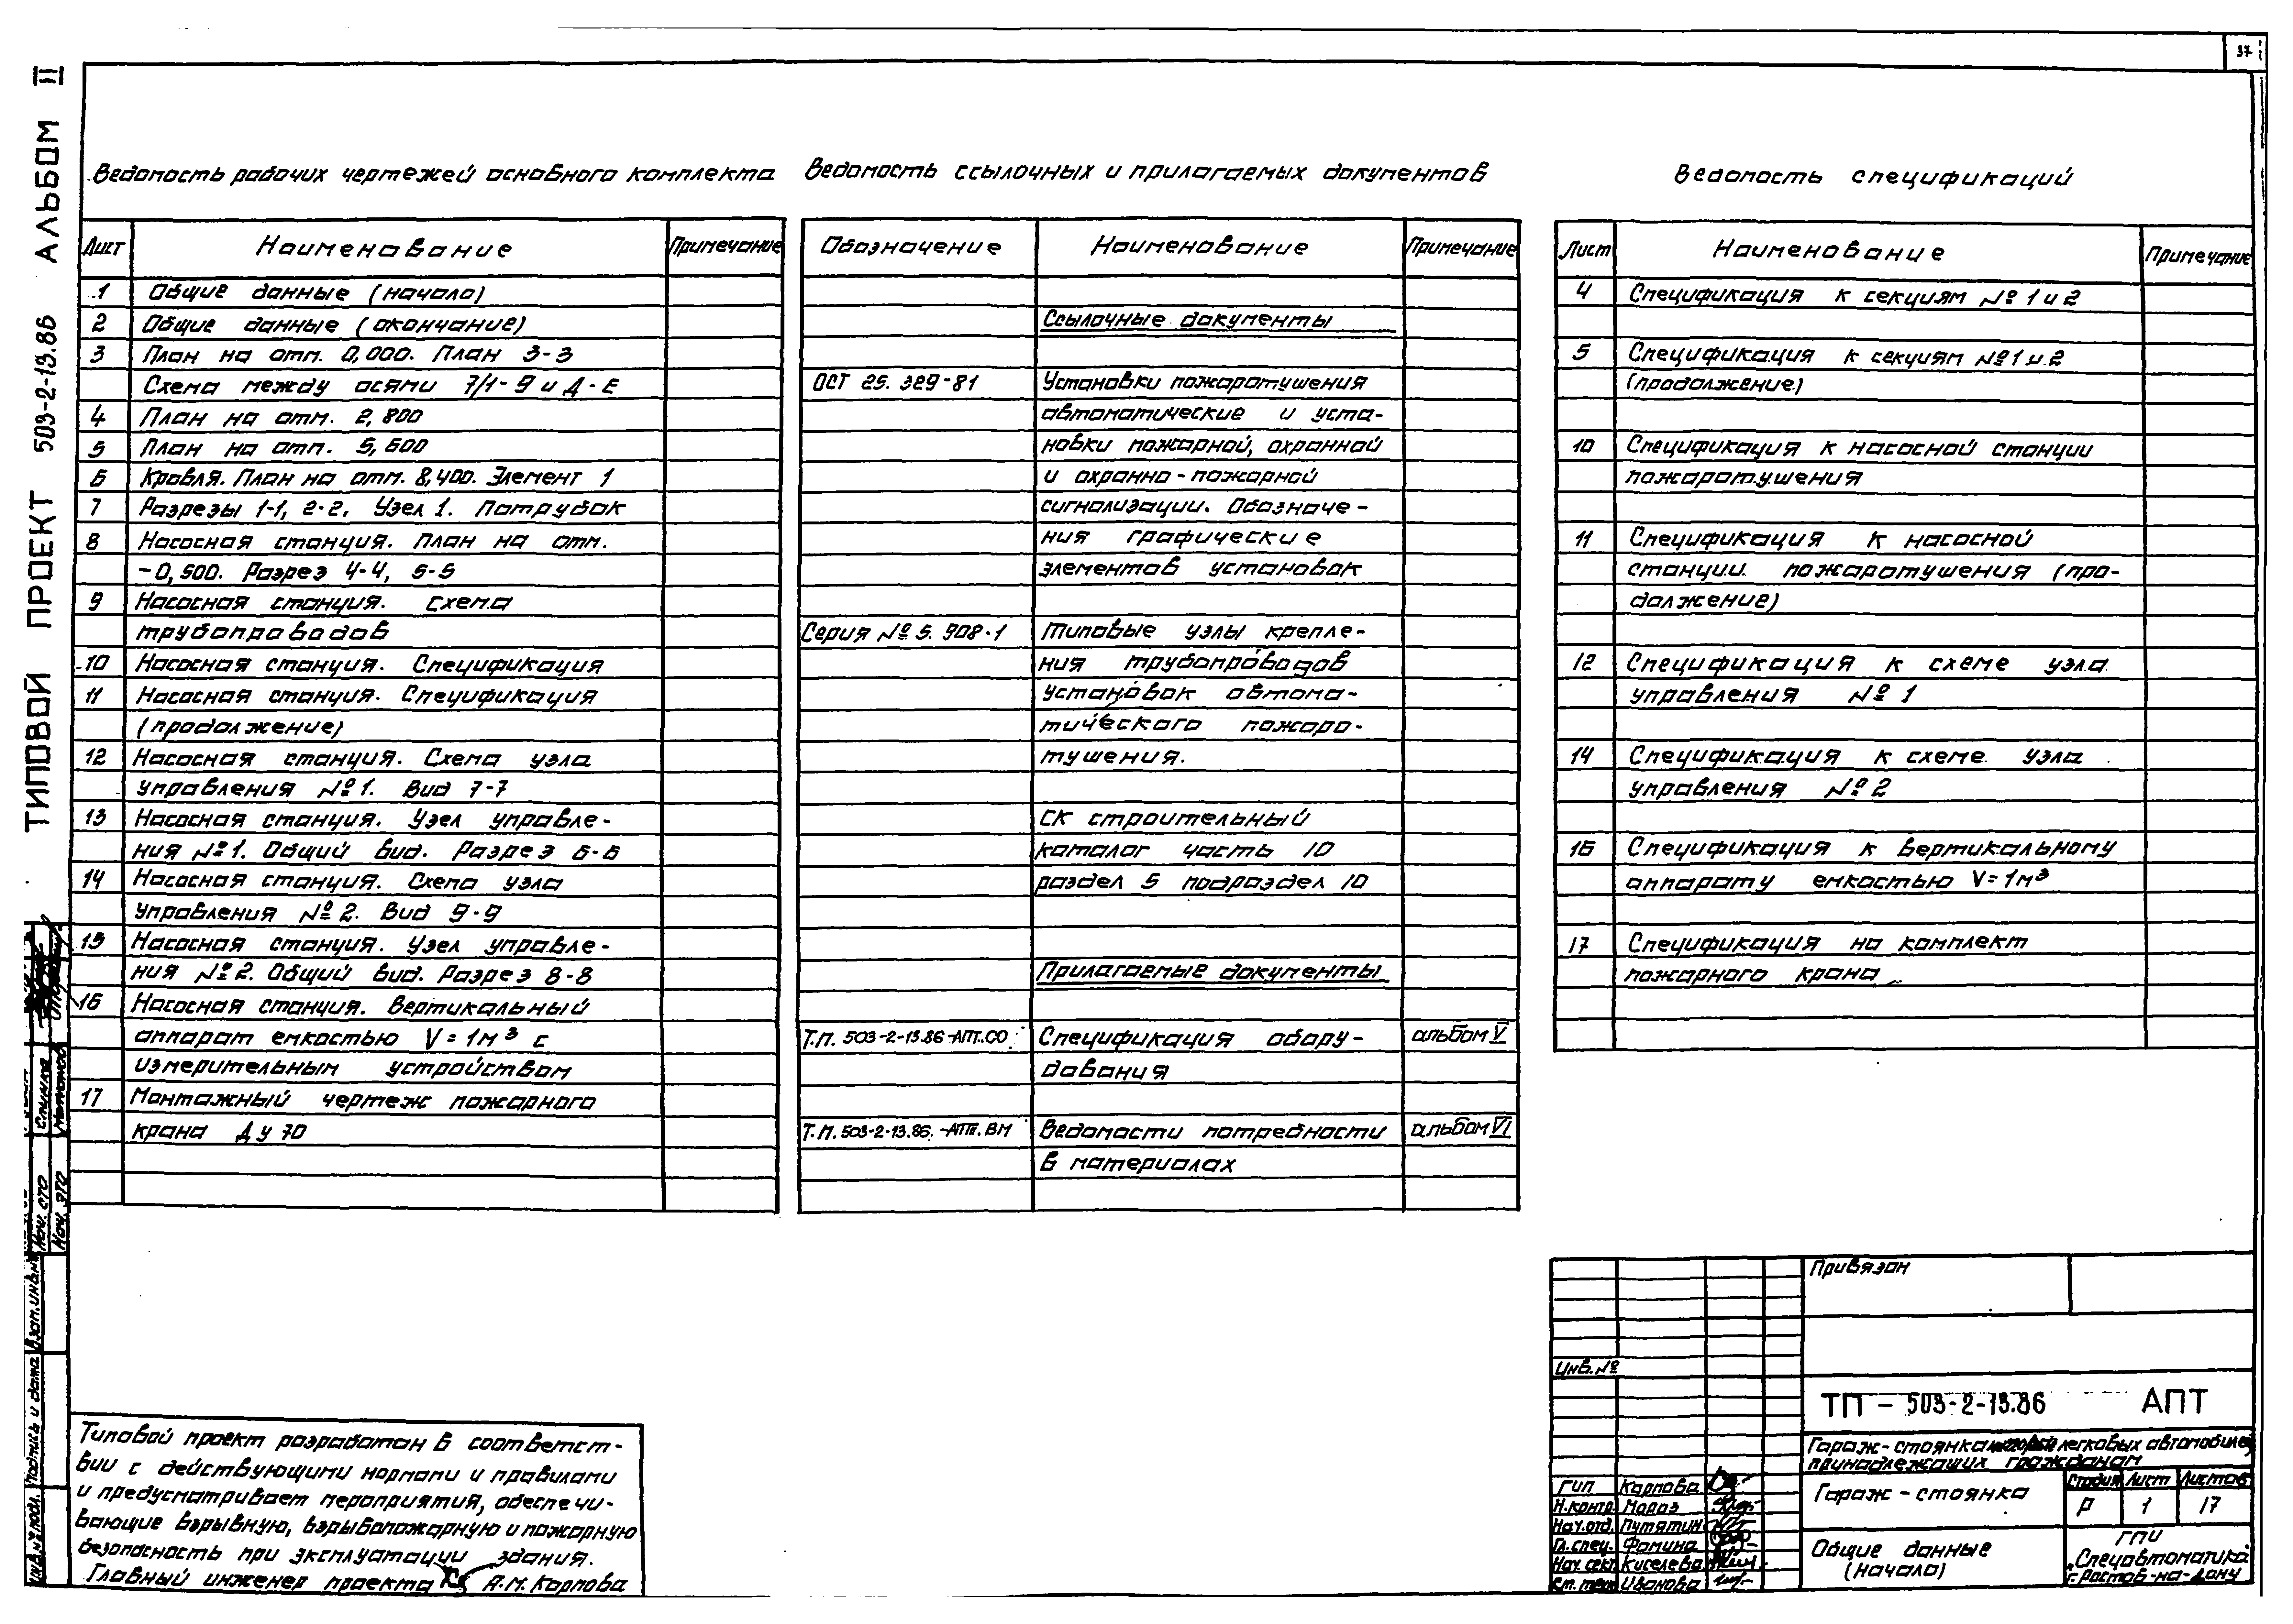 37
ТИПОВОЙ ПРОЕКТ 503-2-13.86 АЛЬБОМ II
Ведомость рабочих чертежей основного комплекта
Лист Наименование Примечание
1 Общие данные (начало)
2 Общие данные (окончание)
3 План на отм. 0,000. План 3-3
Схема между осями 7/1-9 и Д-Е
4 План на отм. 2,800
5 План на отм. 5,600
6 Кровля. План на отм. 8,400. Элемент 1
7 Разрезы 1-1, 2-2, Узел 1. Патрубок
8 Насосная станция. План на отм.
-0,500. Разрез 4-4, 5-5
9 Насосная станция. Схема
трубопроводов
10 Насосная станция. Спецификация
11 Насосная станция. Спецификация
(продолжение)
12 Насосная станция. Схема узла
управления №1. Вид 7-7
13 Насосная станция. Узел управле-
ния №1. Общий вид. Разрез 6-6
14 Насосная станция. Схема узла
управления №2. Вид 9-9
15 Насосная станция. Узел управле-
ния №2. Общий вид. Разрез 8-8
16 Насосная станция. Вертикальный
аппарат емкостью V=1м³ с
измерительным устройством
17 Монтажный чертеж пожарного
крана Ду 70
Ведомость ссылочных и прилагаемых документов
Обозначение Наименование Примечание
Ссылочные документы
ОСТ 25.329-81 Установки пожаротушения
автоматические и уста-
новки пожарной, охранной
и охранно-пожарной
сигнализации. Обозначе-
ния графические
элементов установок
Серия № 5.908-1 Типовые узлы крепле-
ния трубопроводов
установок автома-
тического пожаро-
тушения.
СК строительный
каталог часть 10
раздел 5 подраздел 10
Прилагаемые документы
Т.П. 503-2-13.86-АПТ.СО Спецификация обору- альбом V
дования
Т.П. 503-2-13.86.-АПТ.ВМ Ведомости потребности альбом VI
в материалах
Ведомость спецификаций
Лист Наименование Примечание
4 Спецификация к секциям № 1 и 2
5 Спецификация к секциям № 1 и 2
(продолжение)
10 Спецификация к насосной станции
пожаротушения
11 Спецификация к насосной
станции пожаротушения (про-
должение)
12 Спецификация к схеме узла
управления № 1
14 Спецификация к схеме узла
управления № 2
16 Спецификация к вертикальному
аппарату емкостью V=1м³
17 Спецификация на комплект
пожарного крана
Типовой проект разработан в соответст-
вии с действующими нормами и правилами
и предусматривает мероприятия, обеспечи-
вающие взрывную, взрывопожарную и пожарную
безопасность при эксплуатации здания.
Главный инженер проекта А.М. Карпова
Нач. СТО
Нач. ЭТО
Инв.№ подл. Подпись и дата Взам.инв.№
Привязан
Инв.№
ТП - 503-2-13.86 АПТ
Гараж-стоянка легковых автомобилей,
принадлежащих гражданам
ГИП Карпова
Н.контр. Мороз
Нач.отд. Путятин
Гл.спец. Фомина
Нач.сект. Киселева
Ст.техн. Иванова
Гараж-стоянка
Стадия Лист Листов
Р 1 17
Общие данные
(начало)
ГПИ
„Спецавтоматика"
г. Ростов-на-Дону